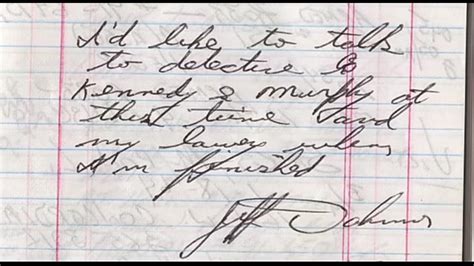 I'd like to talk
to detective
Kennedy & Murphy at
this time and
my lawer when
I'm finished
Jeff Dahmer